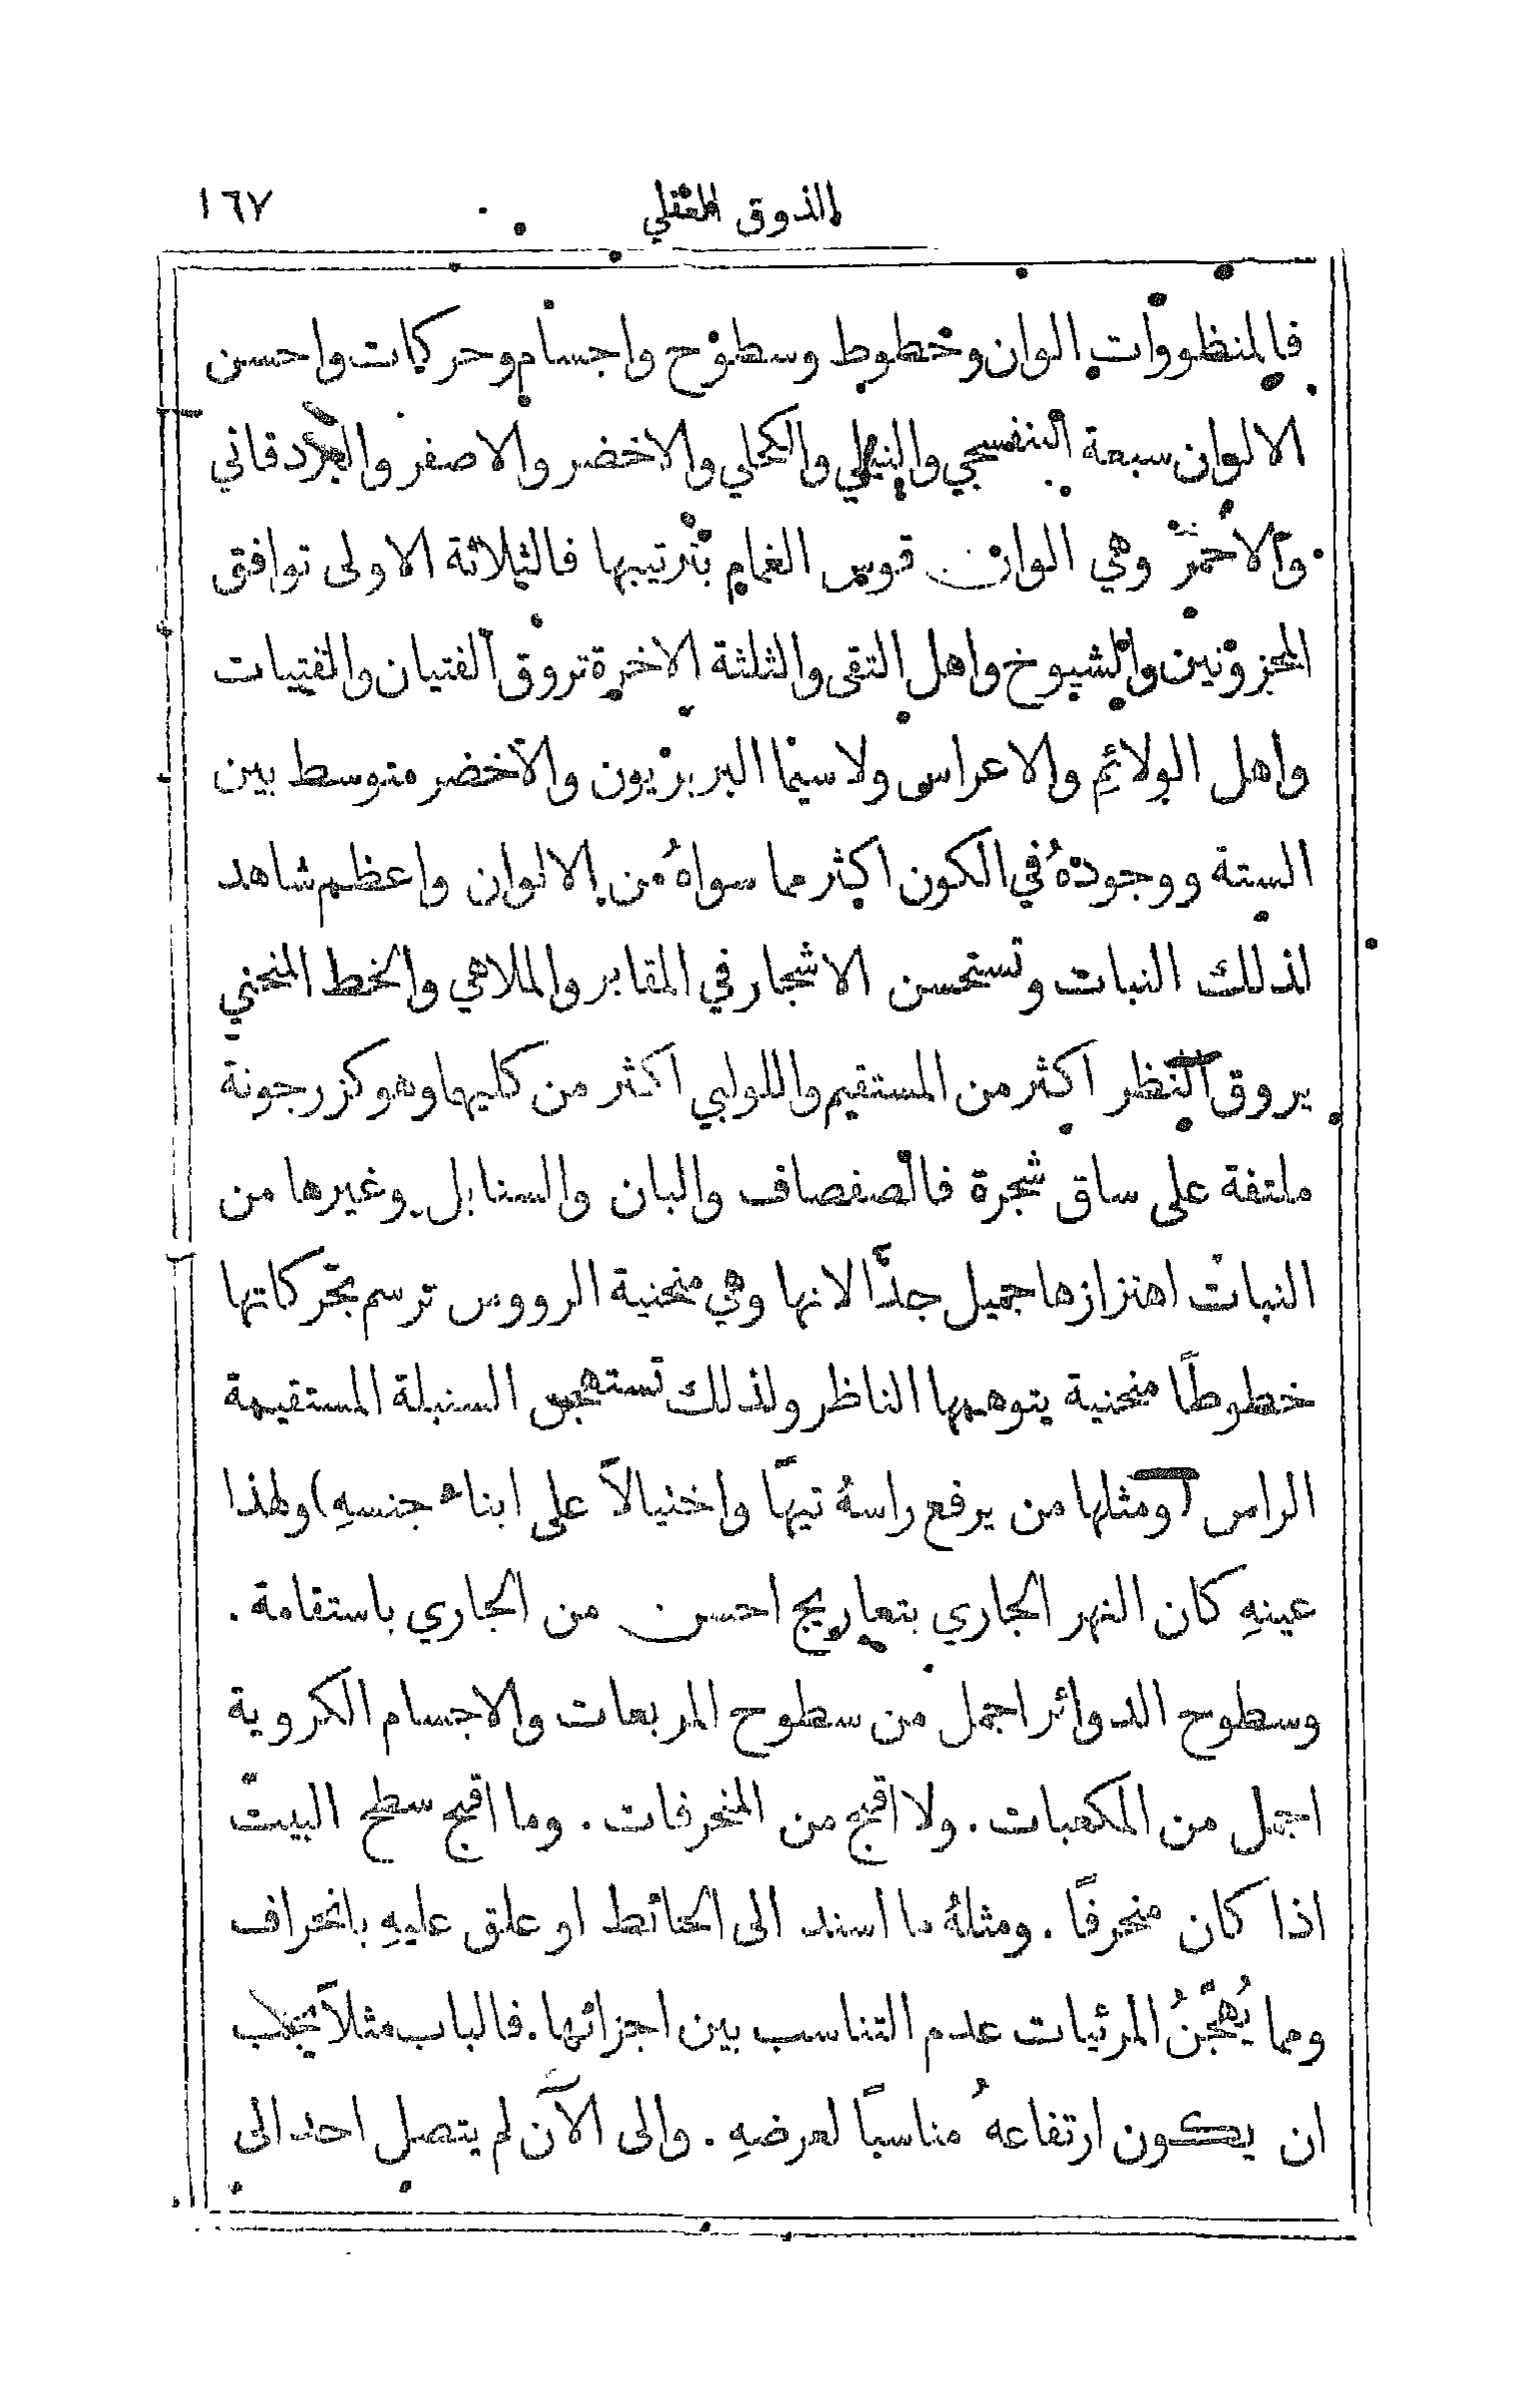 الذوق العقلي ١٦٧
فالمنظورات الوان وخطوط وسطوح واجسام وحركات واحسن
الالوان سبعة البنفسجي والنيلي والكحلي والاخضر والاصفر والبردقاني
والاحمر وهي الوان قوس الغمام بترتيبها فالثلاثة الاولى توافق
المحزونين والشيوخ واهل التقى والثلثة الاخرة تروق الفتيان والفتيات
واهل الولائم والاعراس ولا سيما البربريون والاخضر متوسط بين
الستة ووجودهُ في الكون اكثر مما سواهُ من الالوان واعظم شاهد
لذلك النبات وتستحسن الاشجار في المقابر والملاهي والخط المنحني
يروق النظر اكثر من المستقيم واللولبي اكثر من كليهما وهو كزرجونة
ملتفة على ساق شجرة فالصفصاف والبان والسنابل وغيرها من
النبات اهتزازها جميل جدًّا لانها وهي منحنية الرووس ترسم بحركاتها
خطوطًا منحنية يتوهمها الناظر ولذلك تستهجن السنبلة المستقيمة
الراس (ومثلها من يرفع راسهُ تيهًا واختيالاً على ابناء جنسهِ) ولهذا
عينهِ كان النهر الجاري بتعاريج احسن من الجاري باستقامة .
وسطوح الدوائر اجمل من سطوح المربعات والاجسام الكروية
اجمل من المكعبات . ولا اقبح من المنحرفات . وما اقبح سطح البيت
اذا كان منحرفًا . ومثلهُ ما اسند الى الحائط او علق عليهِ بانحراف
ومما يُهَجِّنُ المرئيات عدم التناسب بين اجزائها . فالباب مثلاً يجب
ان يكون ارتفاعهُ مناسبًا لعرضهِ . والى الآن لم يتصل احد الى